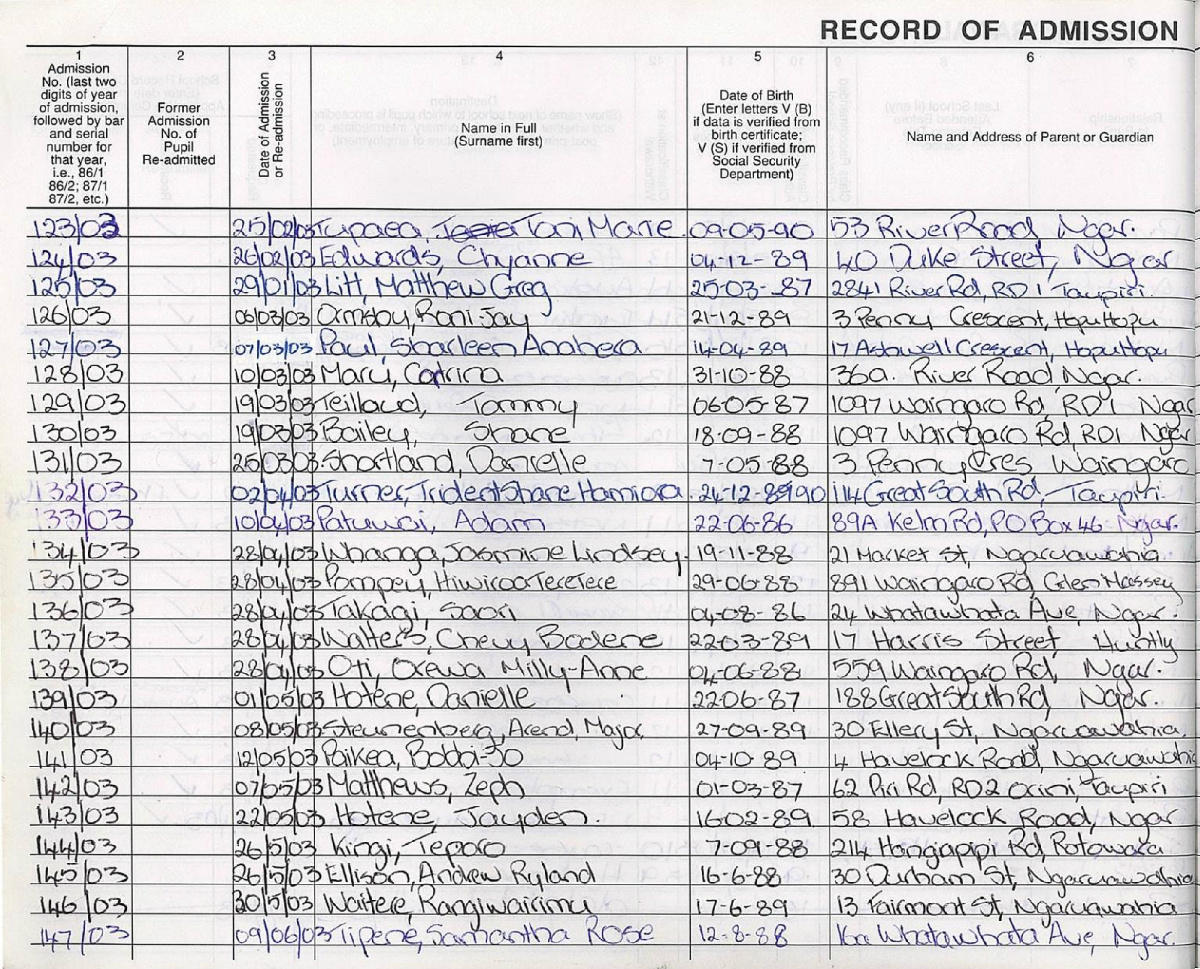 RECORD OF ADMISSION
1 2 3 4 5 6
Admission No. (last two digits of year of admission, followed by bar and serial number for that year, i.e., 86/1 86/2; 87/1 87/2, etc.)
Former Admission No. of Pupil Re-admitted
Date of Admission or Re-admission
Name in Full (Surname first)
Date of Birth (Enter letters V (B) if data is verified from birth certificate; V (S) if verified from Social Security Department)
Name and Address of Parent or Guardian
123/03 25/02/03 Tupaea, Toni Marie 09-05-90 53 River Road Ngar.
124/03 26/02/03 Edwards, Chyanne 04-12-89 40 Duke Street, Ngar
125/03 29/01/03 Litt, Matthew Greg 25-03-87 2841 River Rd, RD 1 Taupiri.
126/03 06/03/03 Ormsby, Roni-Jay 21-12-89 3 Penny Crescent, HopuHopu
127/03 07/03/03 Paul, Sharleen Anahera 14-04-89 17 Crescent, HopuHopu
128/03 10/03/03 Maru, Catrina 31-10-88 36a. River Road Ngar.
129/03 19/03/03 Teillaud, Tammy 06-05-87 1097 Waingaro Rd, RD1 Ngar
130/03 19/03/03 Bailey, Shane 18-09-88 1097 Waingaro Rd, RD1 Ngar
131/03 25/03/03 Shortland, Danielle 7-05-88 3 Penny Cres Waingaro
132/03 02/04/03 Turner, Trident Shane Hamiora 24-12-8990 114 Great South Rd, Taupiri.
133/03 10/04/03 Patuwai, Adam 22-06-86 89A Kelm Rd, PO Box 46 Ngar.
134/03 28/04/03 Whanga, Jasmine Lindsey. 19-11-88 21 Market St, Ngaruawahia
135/03 28/04/03 Pompey, 29-06-88 891 Waingaro Rd, Glen Massey
136/03 28/04/03 Takagi, Saori 04-08-86 24 Whatawhata Ave, Ngar.
137/03 28/04/03 Walters, Chevy Bodene 22-03-89 17 Harris Street Huntly
138/03 28/04/03 Oti, Orewa Milly-Anne 04-06-88 559 Waingaro Rd, Ngar.
139/03 01/05/03 Hotene, Danielle 22-06-87 188 Great South Rd, Ngar.
140/03 08/05/03 Steunenberg, Arend Major 27-09-89 30 Ellery St, Ngaruawahia,
141/03 12/05/03 Paikea, Bobbi-Jo 04-10-89 4 Havelock Road, Ngaruawahia
142/03 07/05/03 Matthews, Zeph 01-03-87 62 Piri Rd, RD2 Orini, Taupiri
143/03 22/05/03 Hotene, Jayden. 16-02-89 58 Havelock Road, Ngar
144/03 26/5/03 Kingi, Teporo 7-09-88 214 Hangapipi Rd, Rotowaro
145/03 26/5/03 Ellison, Andrew Ryland 16-6-88 30 Durham St, Ngaruawahia
146/03 30/5/03 Waitere, Rangiwairimu 17-6-89 13 Fairmont St, Ngaruawahia
147/03 09/06/03 Tipene, Samantha Rose 12-8-88 16a Whatawhata Ave, Ngar.